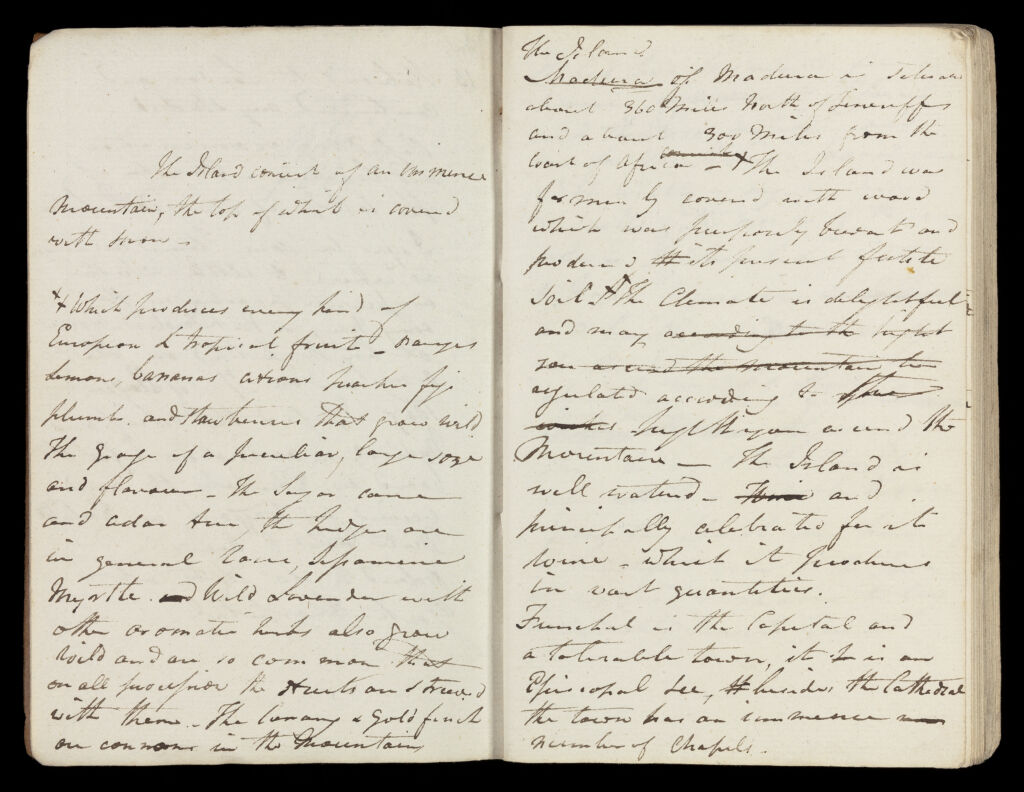 The Island consist of an immence
Mountain, the top of which is covered
with snow -
++ Which produces every kind of
European & tropical fruits - oranges
Lemons, bananas citrons peaches figs
plumbs and strawberries that grow wild
The grape of a peculiar, large size
and flavour - The Sugar cane
and cedar tree, the hedges are
in general rose, Jessamine
Myrtle and Wild Lavender with
other aromatic herbs also grow
Wild and are so common that
on all procession the streets are strewed
with them - The canary & gold finch
are common in the Mountains
The Island
Madeira of Madeira is
about 360 Miles North of Teneriffe
and about 300 Miles from the
Coast of Africa - + The Island was
formerly covered with wood
which was purposely burnt and
produced its present fertile
soil ++ The Clemate is delightful
and may according to the hight
you ascend the mountain be
regulated according to the
wishes hight you ascend the
Mountain - The Island is
well watered - and
principally celebrated for its
wine - which it produces
in vast quantities.
Funchal is the Capital and
a tolerable town, it is an
Episcopal See, besides the Cathedral
the town has an immence
number of Chapels.